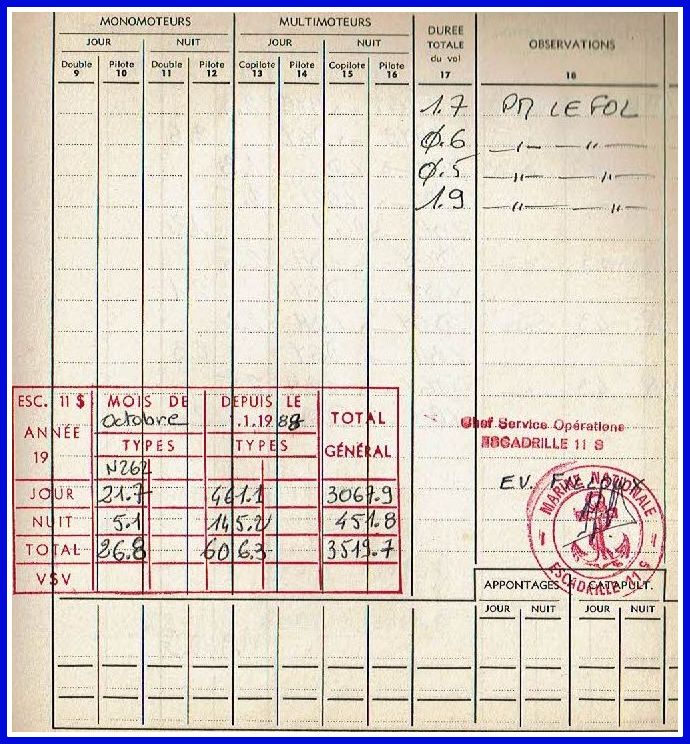 MONOMOTEURS MULTIMOTEURS DUREE TOTALE du vol OBSERVATIONS
JOUR NUIT JOUR NUIT
Double Pilote Double Pilote Copilote Pilote Copilote Pilote
9 10 11 12 13 14 15 16 17 18
1.7 PM LE FOL
Ø.6 —〃— —〃—
Ø.5 —〃— —〃—
1.9 —〃— —〃—
ESC. 11 S MOIS DE DEPUIS LE
octobre 1.1.1988 TOTAL
ANNÉE TYPES TYPES GÉNÉRAL
19 N262
JOUR 21.7 461.1 3067.9
NUIT 5.1 145.2 451.8
TOTAL 26.8 606.3 3519.7
VSV
Chef Service Opérations
ESCADRILLE 11 S
EV.
MARINE NATIONALE
ESCADRILLE 11 S
APPONTAGES CATAPULT.
JOUR NUIT JOUR NUIT